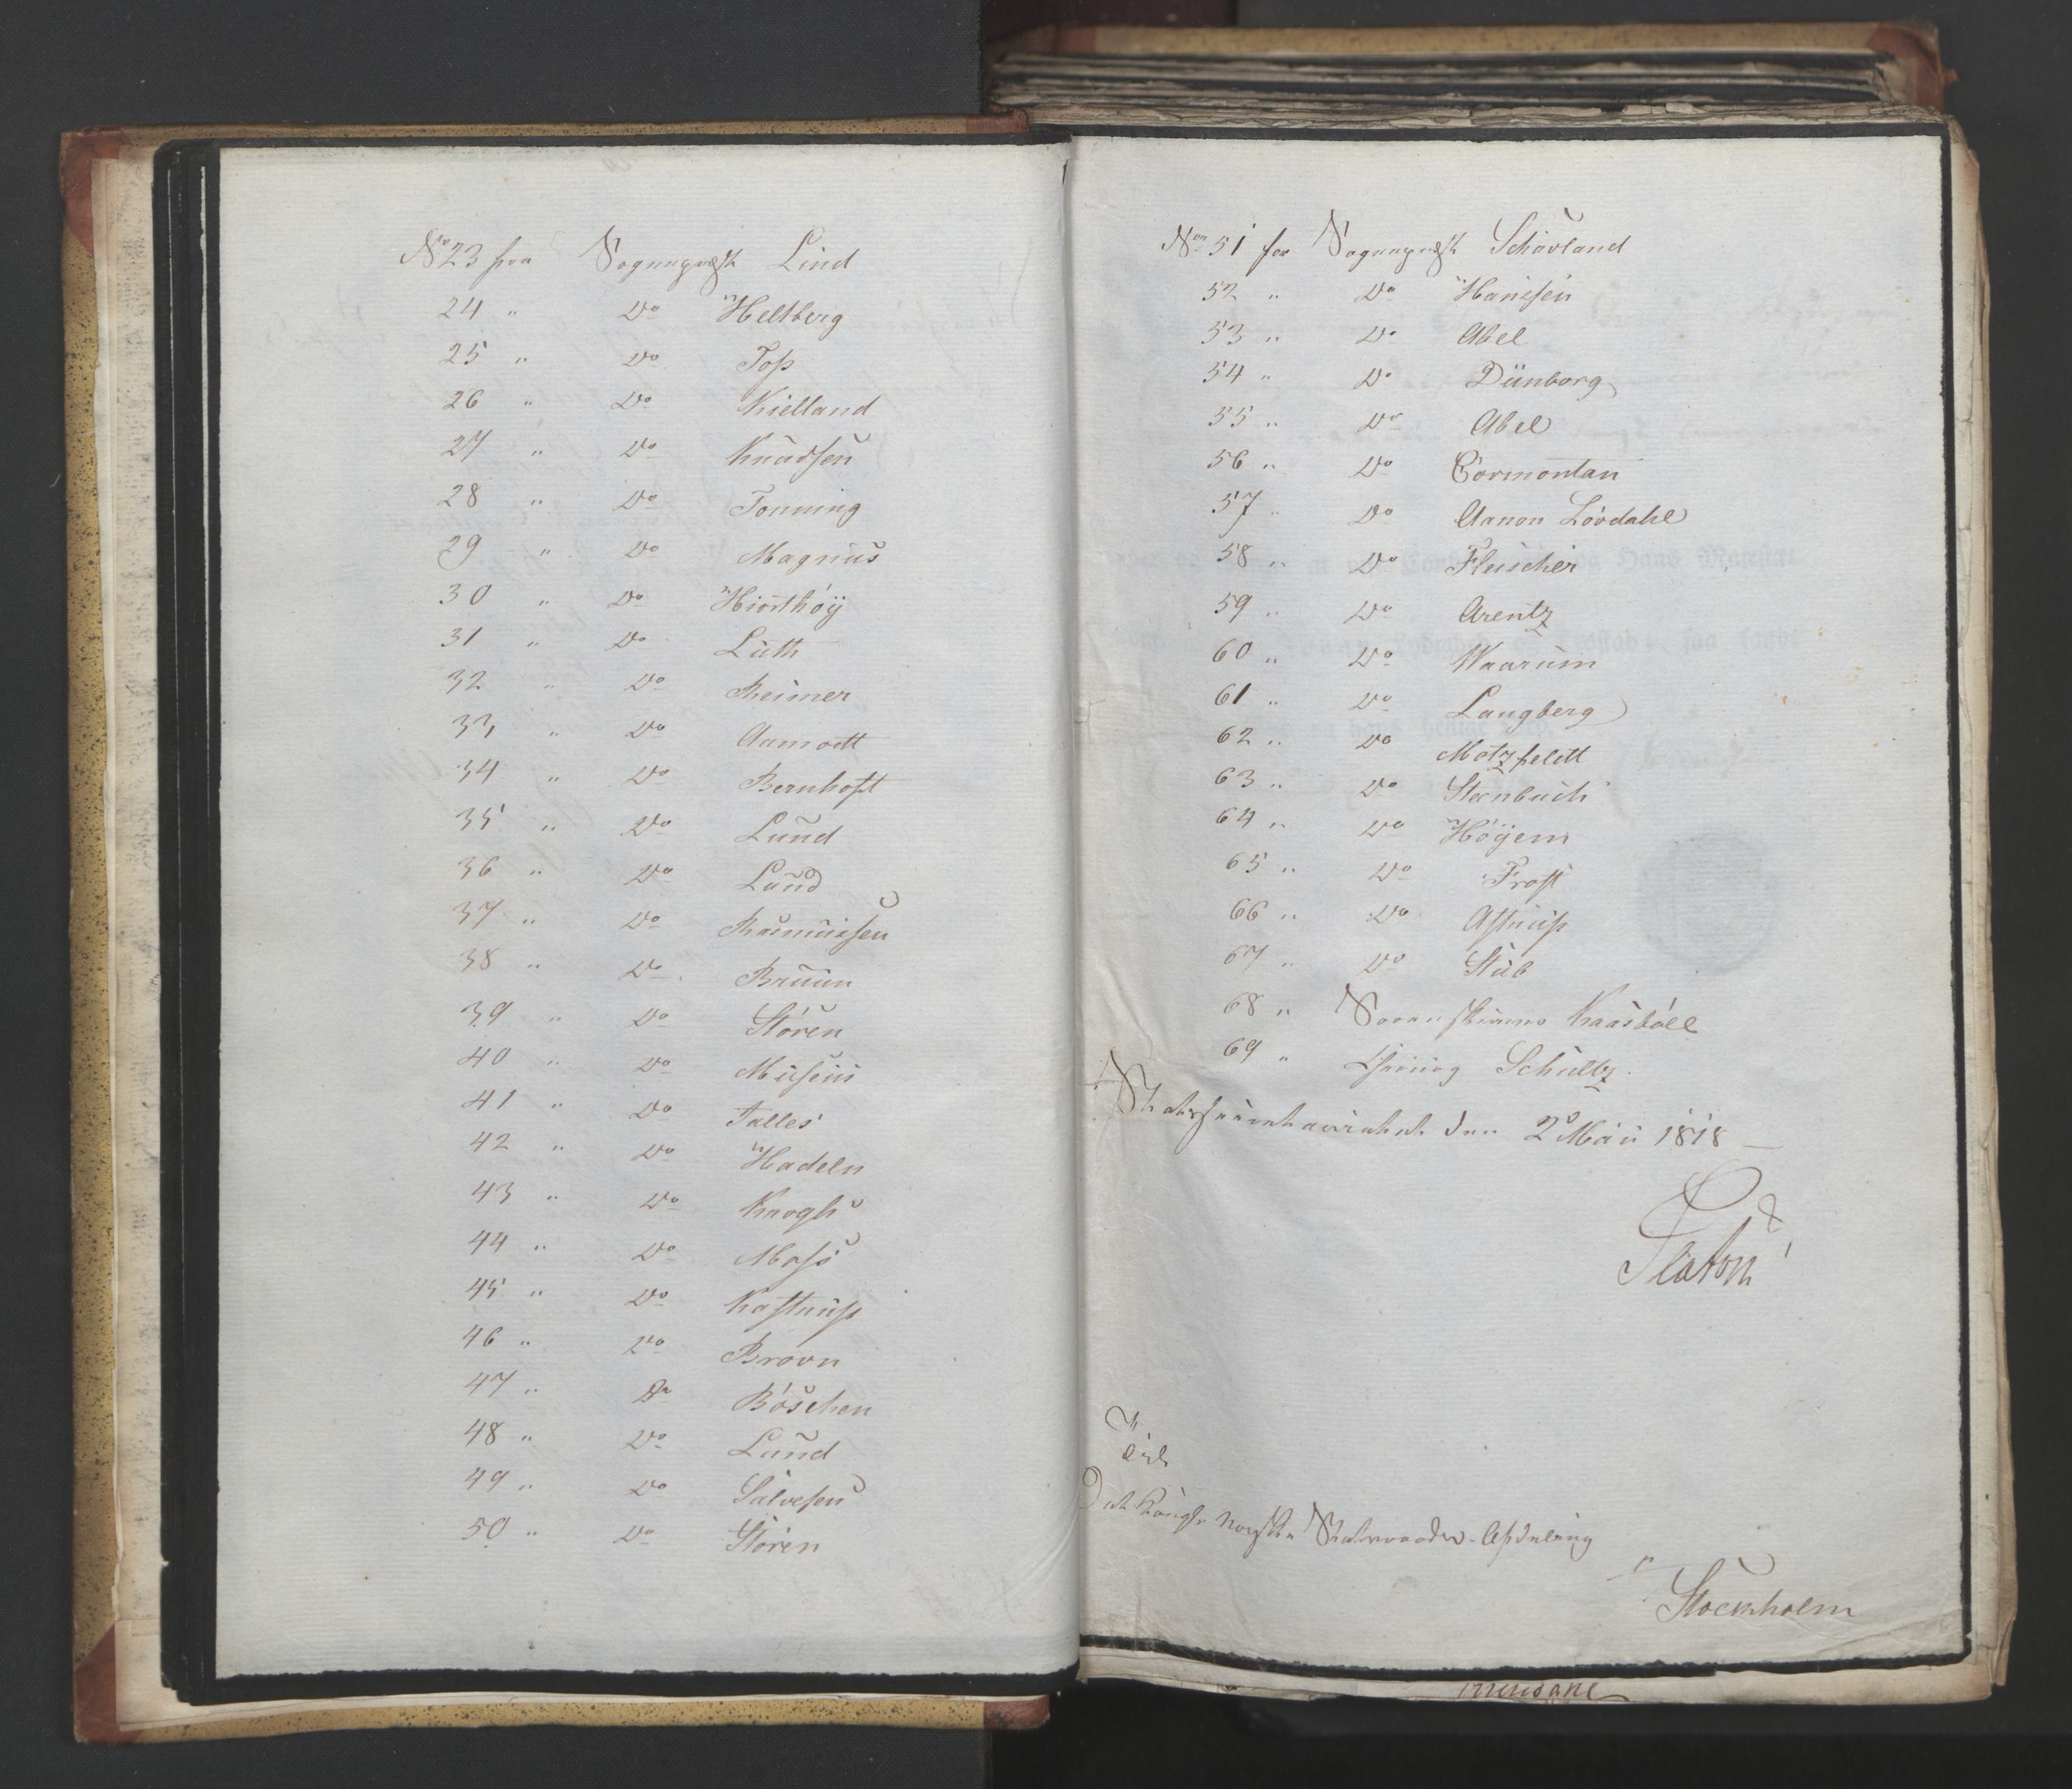 No 23 fra Sognepræst Lind
24 " Do Heltberg
25 " Do Foss
26 " Do Kielland
27 " Do Knudsen
28 " Do Tonning
29 " Do Magnus
30 " Do Hiorthöÿ
31 " Do Luth
32 " Do Reimer
33 " Do Aamodt
34 " Do Bernhoft
35 " Do Lund
36 " Do Lund
37 " Do Rasmussen
38 " Do Bruun
39 " Do Stören
40 " Do Museus
41 " Do
42 " Do Hadeln
43 " Do Krogh
44 " Do Moss
45 " Do Kastrup
46 " Do Brovn
47 " Do Böschen
48 " Do Lund
49 " Do Salvesen
50 " Do Stören
No 51 for Sognepræst Schovland
52 " Do Hansen
53 " Do Abel
54 " Do Dünborg
55 " Do Abel
56 " Do Cormontan
57 " Do Aanon Lövdahl
58 " Do Fleischer
59 " Do Arentz
60 " Do Waarum
61 " Do Langberg
62 " Do Motzfeldt
63 " Do Steenbuch
64 " Do Höÿem
65 " Do Frost
66 " Do Astrup
67 " Do Stub
68 " Sorenskriver Kaasböll
69 " Schultz.
Statssecretariatet den 2 Maii 1818
Platou
Til
Det Kongl: Norske Statsraads-Afdeling
i
Stockholm